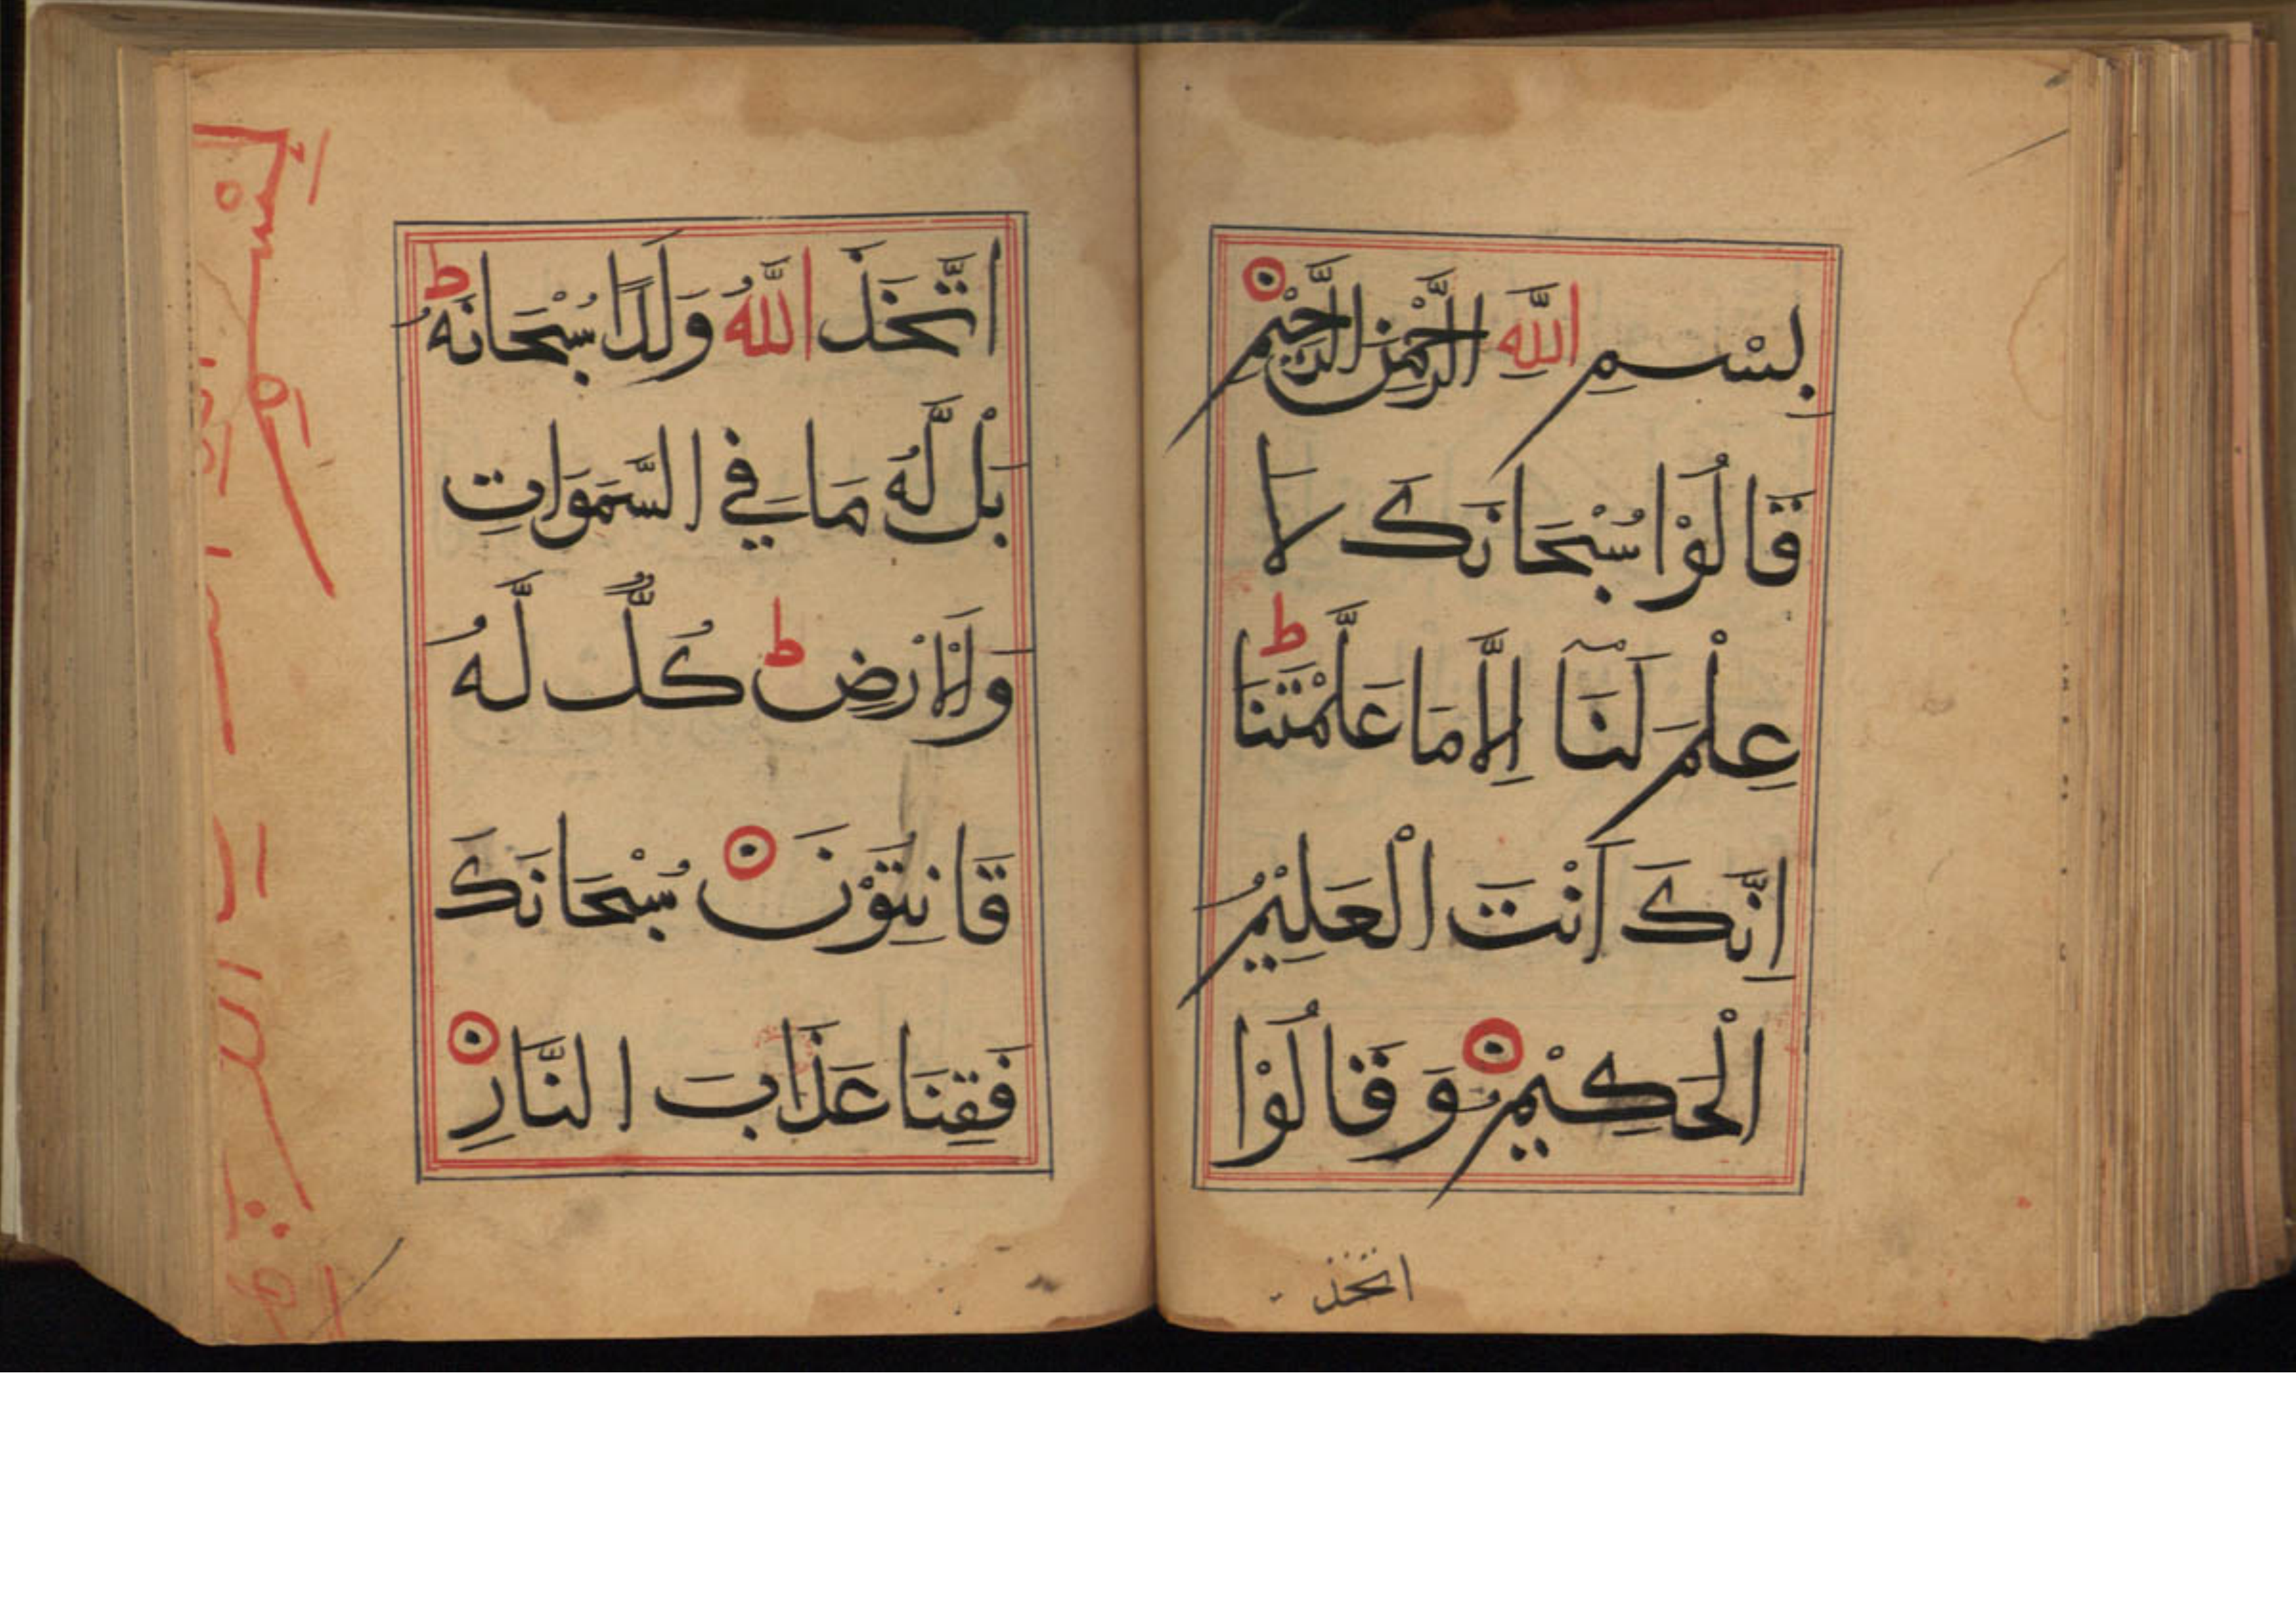 بِسْمِ اللَّهِ الرَّحْمٰنِ الرَّحِيْمِ
قَالُوْا سُبْحَانَكَ لَا
عِلْمَ لَنَآ اِلَّا مَا عَلَّمْتَنَا ط
اِنَّكَ اَنْتَ الْعَلِيْمُ
الْحَكِيْمُ وَقَالُوْا
اتخذ
اتَّخَذَ اللَّهُ وَلَدًا سُبْحَانَهُ ط
بَلْ لَّهُ مَا فِي السَّمَوَاتِ
وَالْاَرْضِ ط كُلٌّ لَّهُ
قَانِتُوْنَ سُبْحَانَكَ
فَقِنَا عَذَابَ النَّارِ